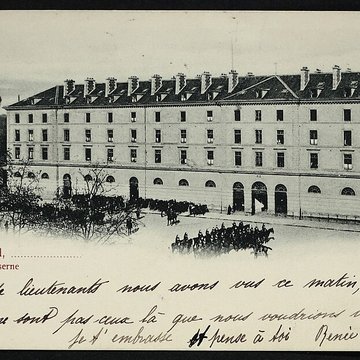 l, ........................
serne
le lieutenants nous avons vus ce matin,
ne sont pas ceux là que nous voudrions
je t'embrasse et pense à toi René